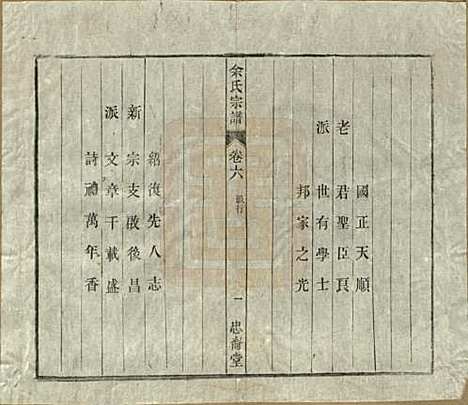 國正天順
老 君聖臣良
派 世有學士
邦家之光
余氏宗譜 卷六 派行 一 忠裔堂
紹復先人志
新 宗支啟後昌
派 文章千載盛
詩禮萬年香